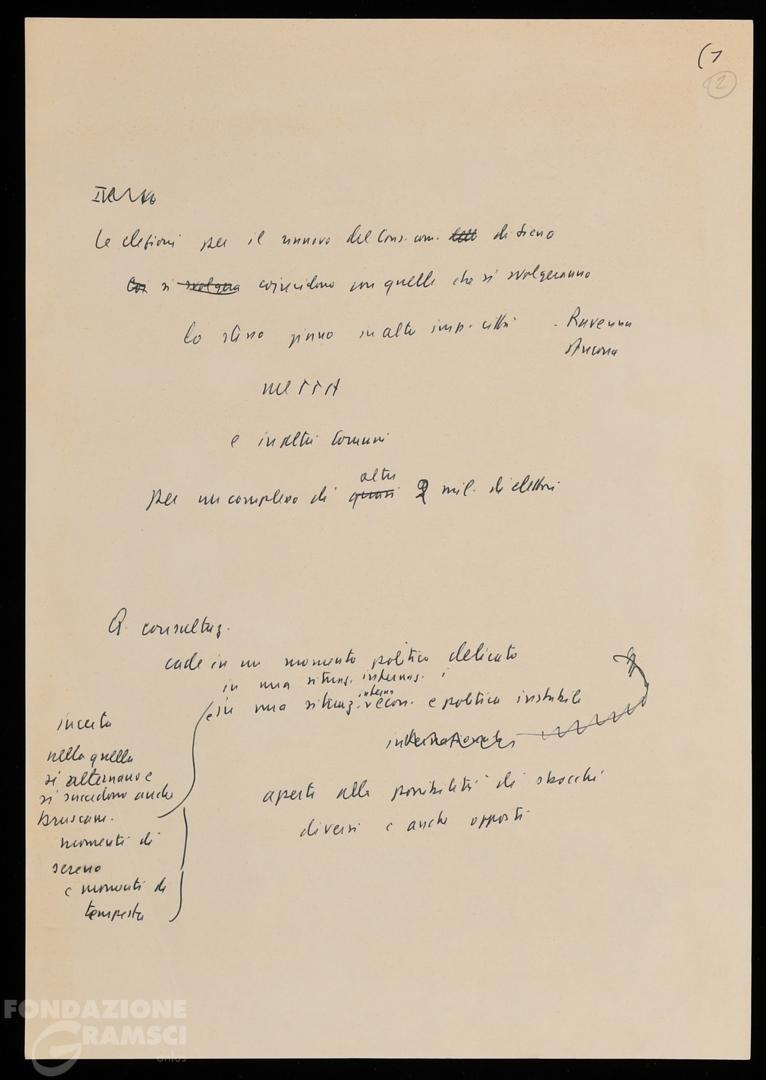 (1
2
Le elezioni per il rinnovo del Cons. com. di Siena
si svolgera coincidono con quelle che si svolgeranno
lo stesso giorno in altre imp. città - Ravenna
Ancona
e in altri Comuni
per un complesso di quasi altri 2 mil. di elettori
Q. consultaz.
cade in un momento politico delicato
in una situaz. internaz. i
e in una situaz. interna econ. e politica instabile
internazionale
aperta alla possibilità di sbocchi
diversi e anche opposti
incerta
nella quale
si alternano e
si succedono anche
bruscam.
momenti di
sereno
e momenti di
tempesta
FONDAZIONE
GRAMSCI
onlus